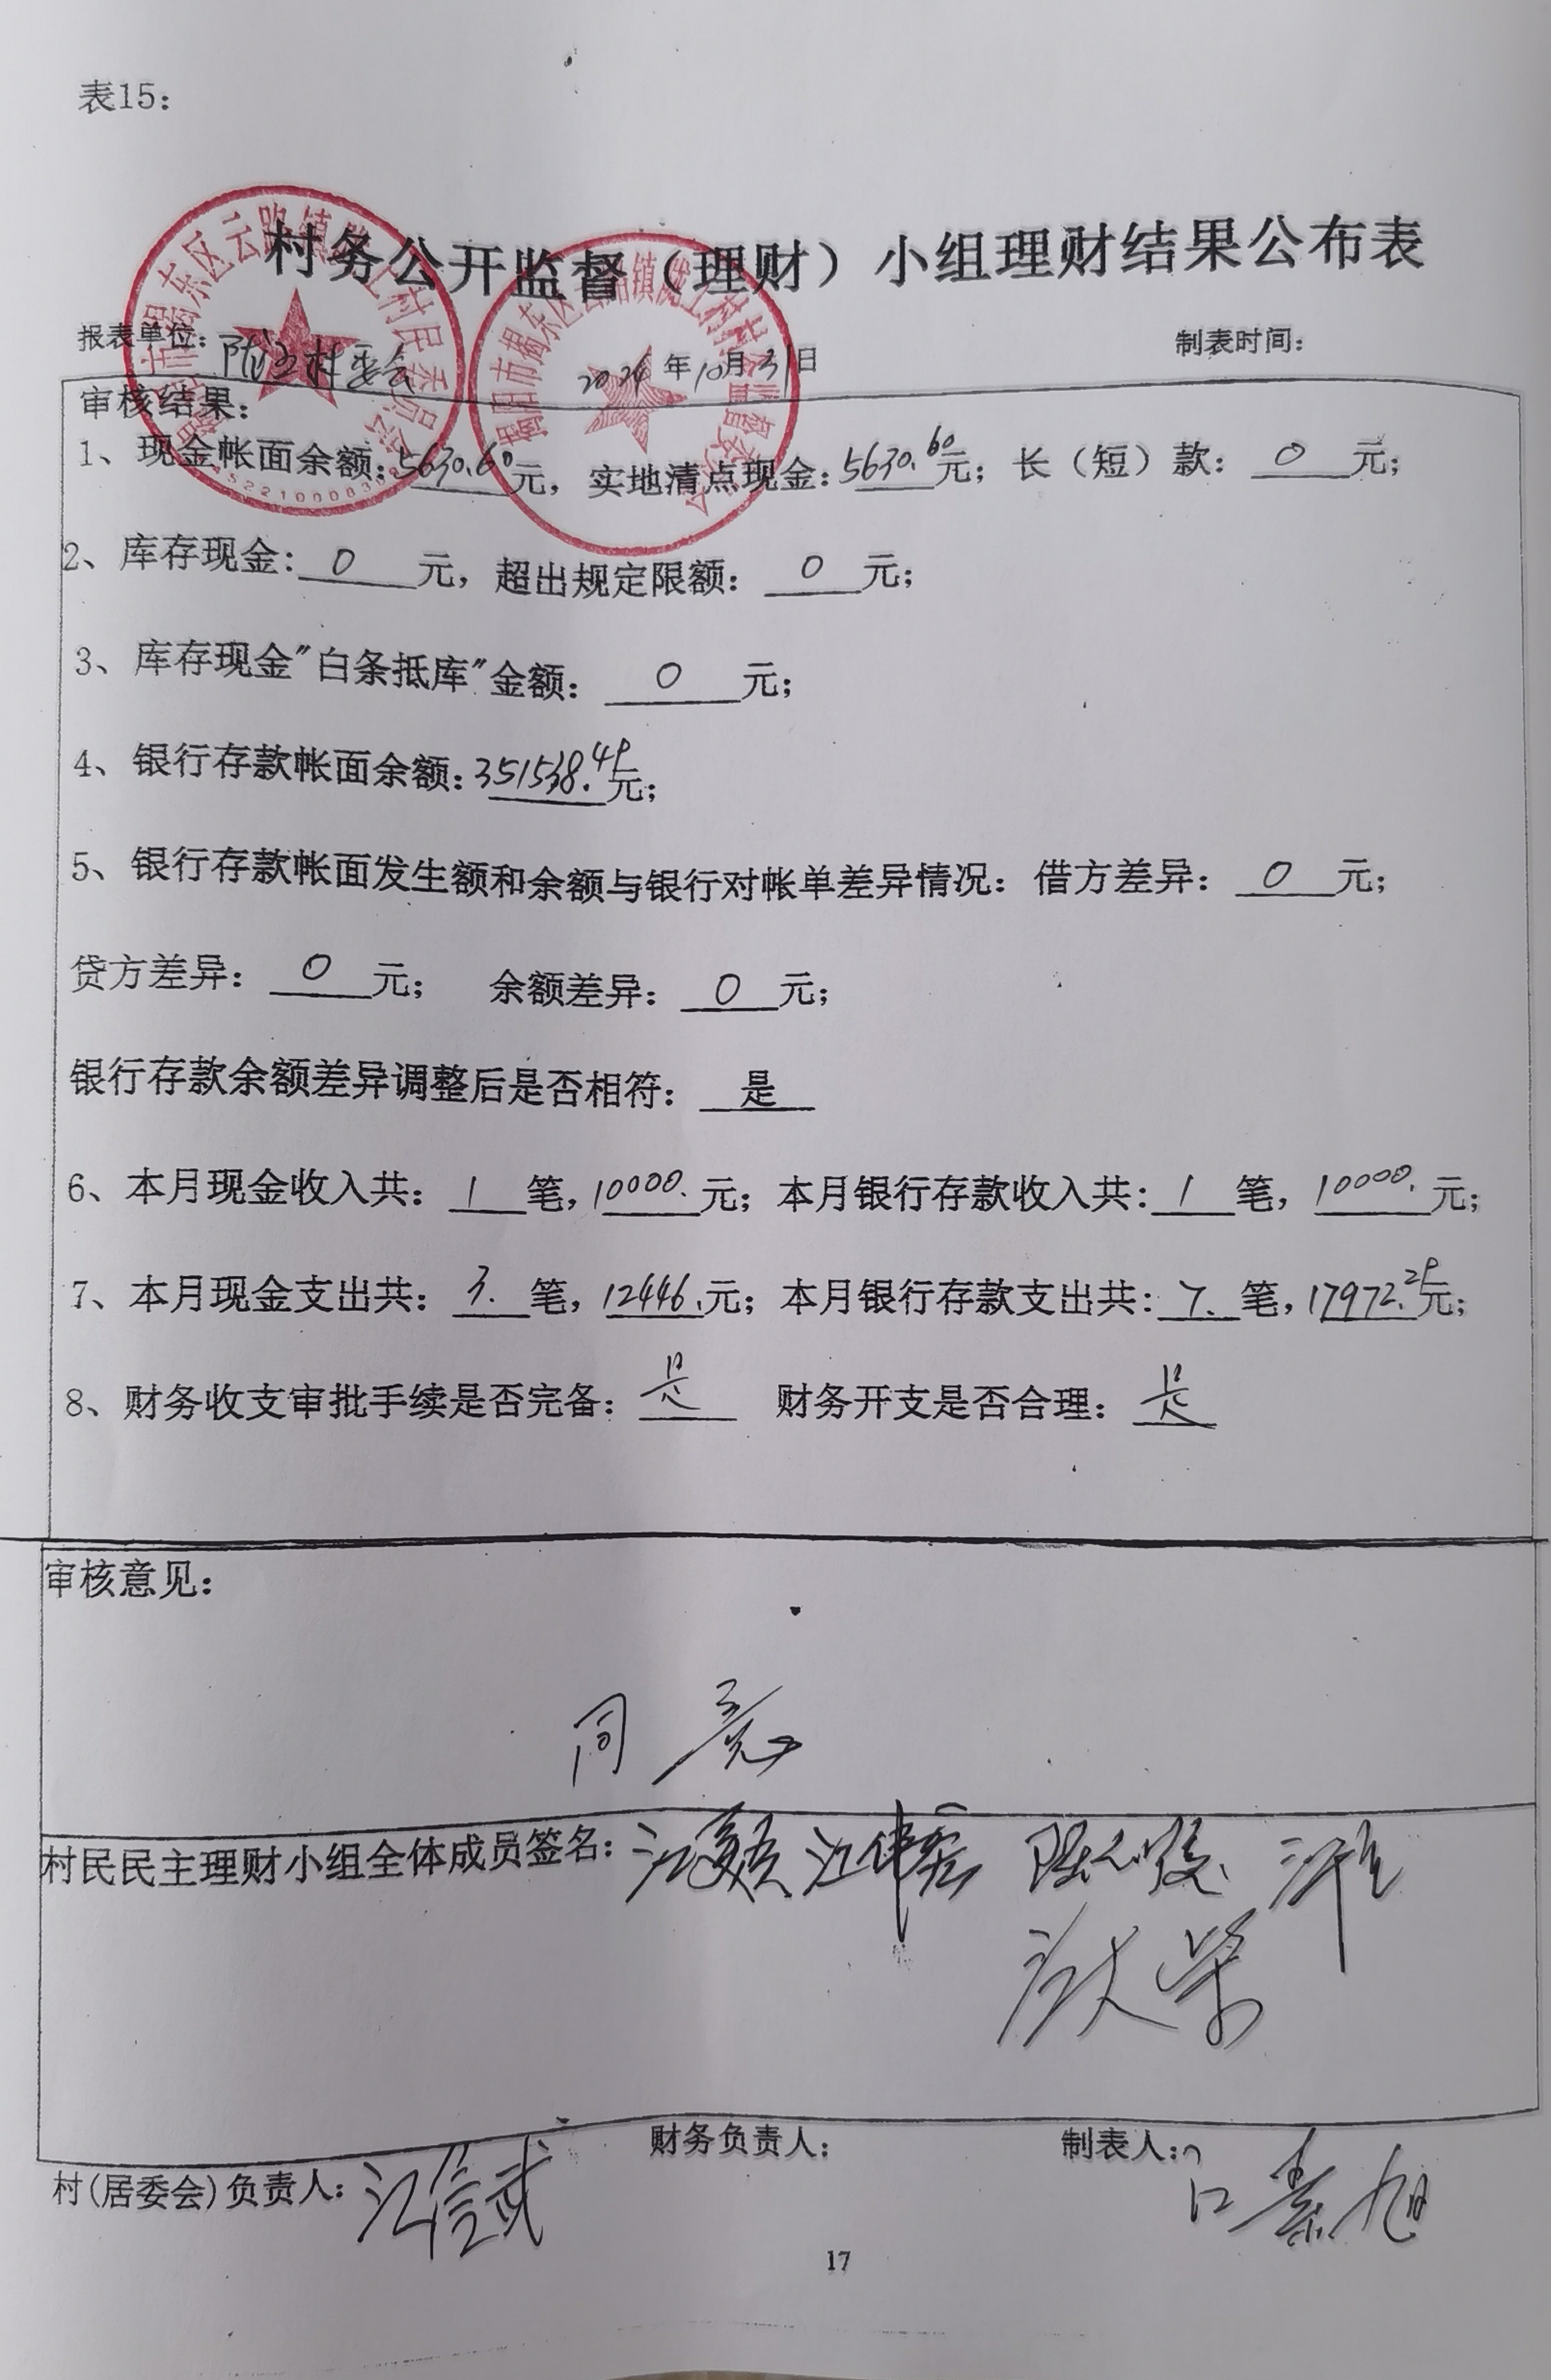 表15：
村务公开监督（理财）小组理财结果公布表
报表单位：陇上村委会 2024年10月31日 制表时间：
审核结果：
1、现金帐面余额：5630.60元，实地清点现金：5630.60元；长（短）款：0元；
2、库存现金：0元，超出规定限额：0元；
3、库存现金"白条抵库"金额：0元；
4、银行存款帐面余额：351538.49元；
5、银行存款帐面发生额和余额与银行对帐单差异情况：借方差异：0元；
贷方差异：0元； 余额差异：0元；
银行存款余额差异调整后是否相符：是
6、本月现金收入共：1笔，10000.元；本月银行存款收入共：1笔，10000.元；
7、本月现金支出共：3.笔，12446.元；本月银行存款支出共：7.笔，17972.29元；
8、财务收支审批手续是否完备：是 财务开支是否合理：是
审核意见：
同意
村民民主理财小组全体成员签名：
财务负责人： 制表人：
村(居委会)负责人：
17